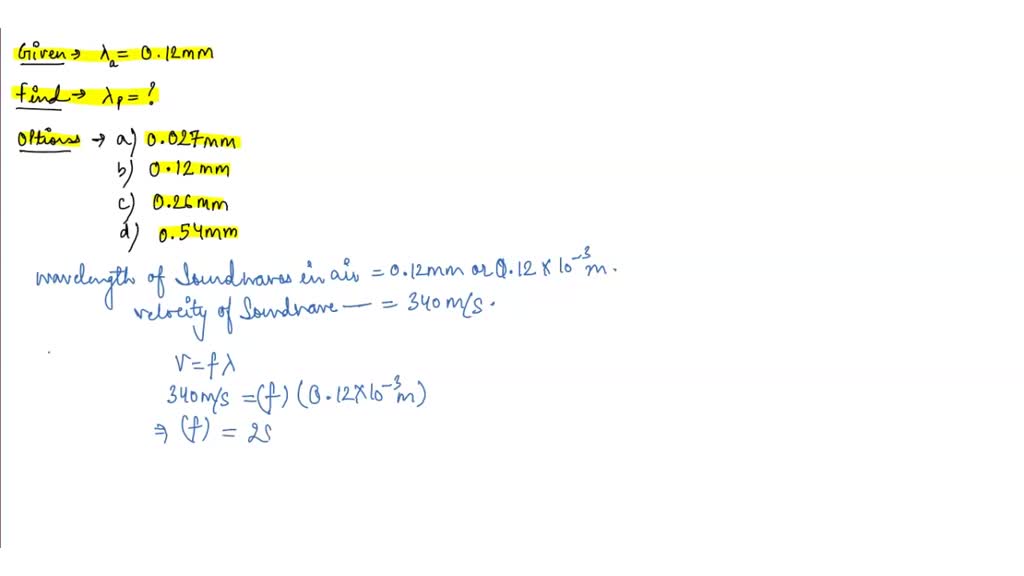 Given → λa = 0.12mm
find → λp = ?
Options → a) 0.027mm
b) 0.12 mm
c) 0.26mm
d) 0.54mm
wavelength of Soundwaves in air = 0.12mm or 0.12 × 10⁻³ m.
velocity of Soundwave — = 340 m/s.
V = fλ
340 m/s = (f) (0.12×10⁻³ m)
⇒ (f) = 28